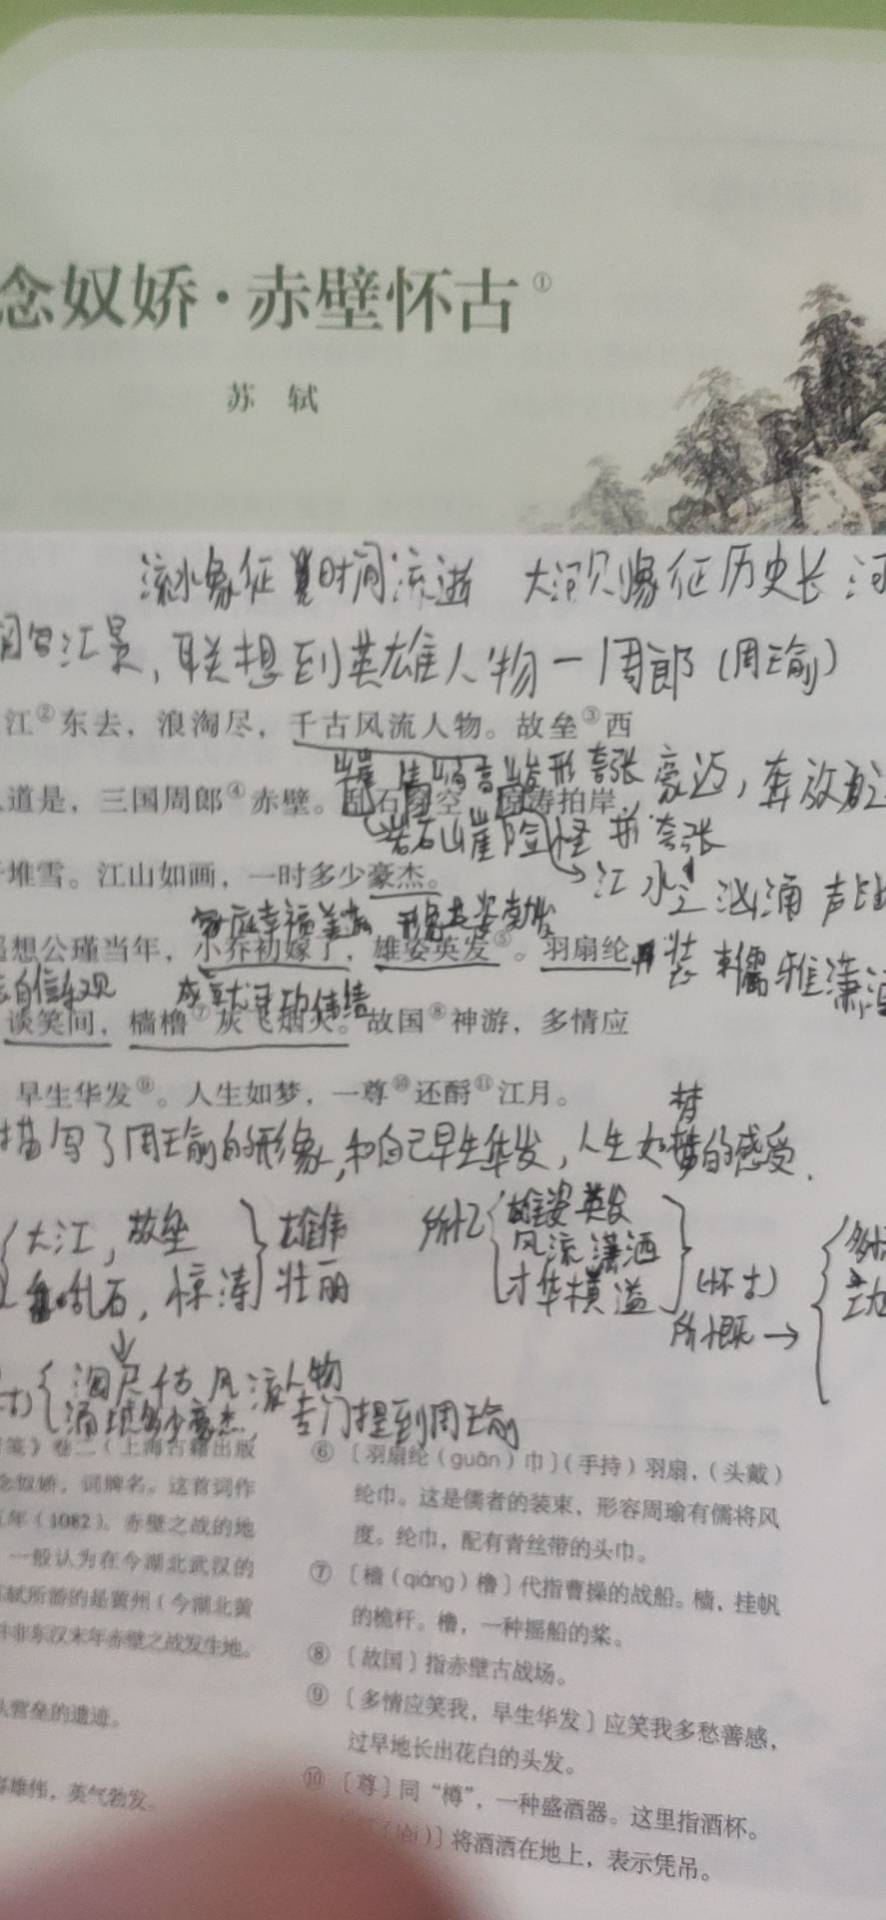 念奴娇·赤壁怀古①
苏 轼
流水象征时间流逝 大河象征历史长河
江景，联想到英雄人物一周郎（周瑜）
江②东去，浪淘尽，千古风流人物。故垒③西
夸张 豪迈，奔放
道是，三国周郎④赤壁。乱石穿空，惊涛拍岸，
岩石山崖险怪 夸张
堆雪。江山如画，一时多少豪杰。
江水汹涌
家庭幸福美满 形象英姿勃发
遥想公瑾当年，小乔初嫁了，雄姿英发⑤。羽扇纶
装束儒雅潇洒
自信乐观 成就
谈笑间，樯橹⑦灰飞烟灭。故国⑧神游，多情应
早生华发⑨。人生如梦，一尊⑩还酹⑪江月。
梦
描写了周瑜的形象，和自己早生华发，人生如梦的感受.
大江，故垒 雄伟 所忆 雄姿英发
乱石，惊涛 壮丽 风流潇洒
才华横溢 （怀古）
所慨→
↓
淘尽千古风流人物
涌现多少豪杰，专门提到周瑜
笺》卷二（上海古籍出版
念奴娇，词牌名。这首词作
年（1082）。赤壁之战的地
一般认为在今湖北武汉的
苏轼所游的是黄州（今湖北黄
并非东汉末年赤壁之战发生地。
营垒的遗迹。
雄伟，英气勃发。
⑥〔羽扇纶（guān）巾〕（手持）羽扇，（头戴）
纶巾。这是儒者的装束，形容周瑜有儒将风
度。纶巾，配有青丝带的头巾。
⑦〔樯（qiáng）橹〕代指曹操的战船。樯，挂帆
的桅杆。橹，一种摇船的桨。
⑧〔故国〕指赤壁古战场。
⑨〔多情应笑我，早生华发〕应笑我多愁善感，
过早地长出花白的头发。
⑩〔尊〕同“樽”，一种盛酒器。这里指酒杯。
（lèi）〕将酒洒在地上，表示凭吊。